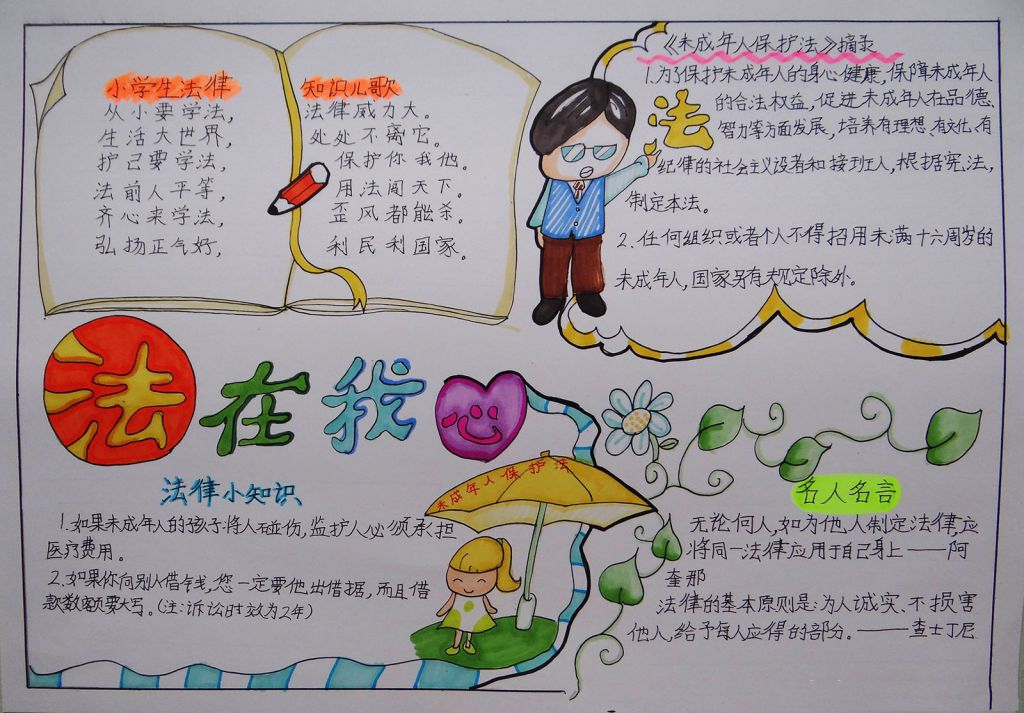 小学生法律
从小要学法，
生活大世界，
护己要学法，
法前人平等，
齐心来学法，
弘扬正气好，
知识儿歌
法律威力大。
处处不离它。
保护你我他。
用法闯天下。
歪风都能杀。
利民利国家。
《未成年人保护法》摘录
1.为了保护未成年人的身心健康，保障未成年人
的合法权益，促进未成年人在品德、
智力等方面发展，培养有理想、有文化、有
纪律的社会主义设者和接班人，根据宪法，
制定本法。
2.任何组织或者个人不得招用未满十六周岁的
未成年人，国家另有规定除外。
法
法在我心
法律小知识
1.如果未成年人的孩子将人碰伤，监护人必须承担
医疗费用。
2.如果你向别人借钱，您一定要他出借据，而且借
款数额要大写。（注：诉讼时效为2年）
未成年人保护法
名人名言
无论何人，如为他人制定法律，应
将同一法律应用于自己身上——阿
奎那
法律的基本原则是：为人诚实、不损害
他人，给予每人应得的部分。——查士丁尼